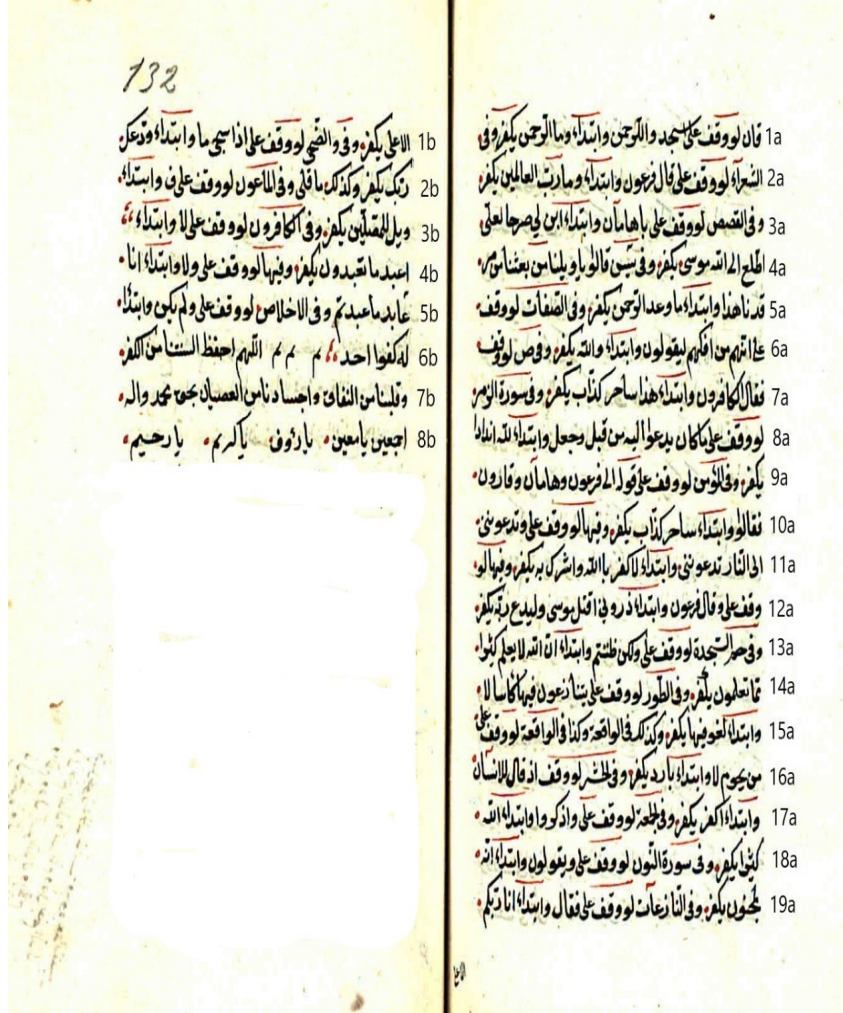 قان لو وقف على اسجد والرحمن وابتداء وما الرحمن يكفر وفى 1a
الشعراء لو وقف على قال فرعون وابتداء وما رب العالمين يكفر 2a
وفى القصص لو وقف على ياهامان وابتداء ابن لى صرحا لعلى 3a
اطلع الى اله موسى يكفر وفى يس قالوا يا ويلنا من بعثنا من مر 4a
قدنا هذا وابتداء ما وعد الرحمن يكفر وفى الصفات لو وقف 5a
على انهم من افكهم ليقولون وابتداء والله يكفر وفى ص لو وقف 6a
فقال الكافرون وابتداء هذا ساحر كذاب يكفر وفى سورة الزمر 7a
لو وقف على ماكان يدعوا اليه من قبل وجعل وابتداء لله اندادا 8a
يكفر وفى المؤمن لو وقف على قوله الى فرعون وهامان وقارون 9a
فقالوا وابتداء ساحر كذاب يكفر وفيها لو وقف على وتدعوننى 10a
الى النار تدعوننى وابتداء لاكفر باالله واشرك به يكفر وفيها لو 11a
وقف على وقال فرعون وابتداء ذرونى اقتل موسى وليدع ربه يكفر 12a
وفى حم السجدة لو وقف على ولكن ظننتم وابتداء ان الله لا يعلم كثيرا 13a
مما تعلمون يكفر وفى الطور لو وقف على يتنازعون فيها كاسا لا 14a
وابتداء لغو فيها يكفر وكذلك فى الواقعة وكذا فى الواقعة لو وقف على 15a
من يحوم لا وابتداء بارد يكفر وفى الحشر لو وقف اذ قال للانسان 16a
وابتداء اكفر يكفر وفى الجمعة لو وقف على واذكروا وابتداء الله 17a
كثيرا يكفر وفى سورة النون لو وقف على ويقولون وابتداء انه 18a
لمجنون يكفر وفى النازعات لو وقف على فقال وابتداء انا ربكم 19a
الاعلى
132
الاعلى يكفر وفى والضحى لو وقف على اذا سجى ما وابتداء ودعك 1b
ربك يكفر وكذلك ما قلى وفى الماعون لو وقف على ف وابتداء 2b
ويل للمصلين يكفر وفى الكافرون لو وقف على لا وابتداء 3b
اعبد ما تعبدون يكفر وفيها لو وقف على ولا وابتداء انا 4b
عابد ما عبدتم وفى الاخلاص لو وقف على ولم يكن وابتداء 5b
له كفوا احد م م م اللهم احفظ السنتنا من الكفر 6b
وقلبنا من النفاق واجسادنا من العصيان بحق محمد واله 7b
اجمعين يا معين يا رؤف يا كريم يا رحيم 8b